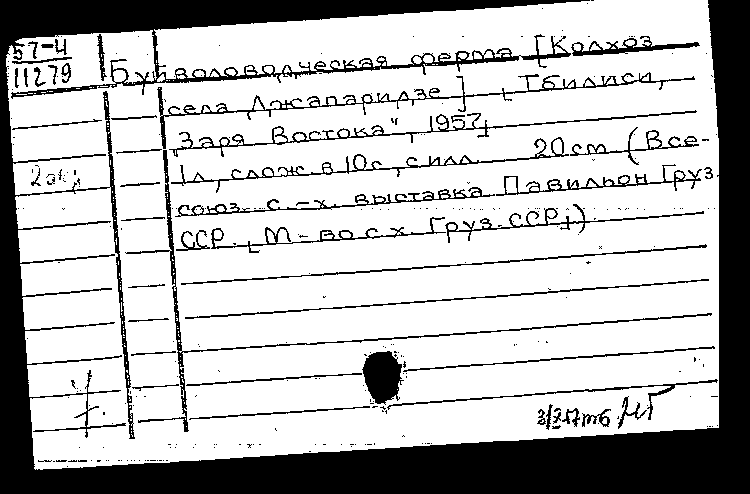 57-4
11279
Буйволоводческая ферма. [Колхоз
села Джапаридзе] [Тбилиси,
"Заря Востока", 1957]
1л, слож. в 10с., с илл. 20см (Все-
2экз
союз. с.-х. выставка Павильон Груз.
ССР. [М-во с х Груз. ССР])